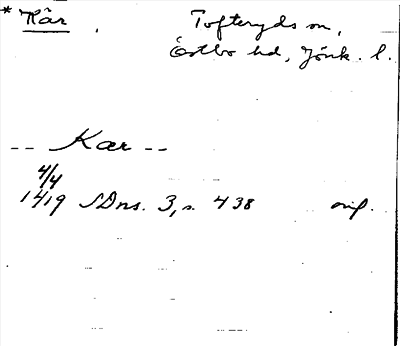 * Kär . Tofteryds sn,
Östbo hd, Jönk. l.
-- Kær --
4/4
1419 SDns. 3, s. 438 orig.